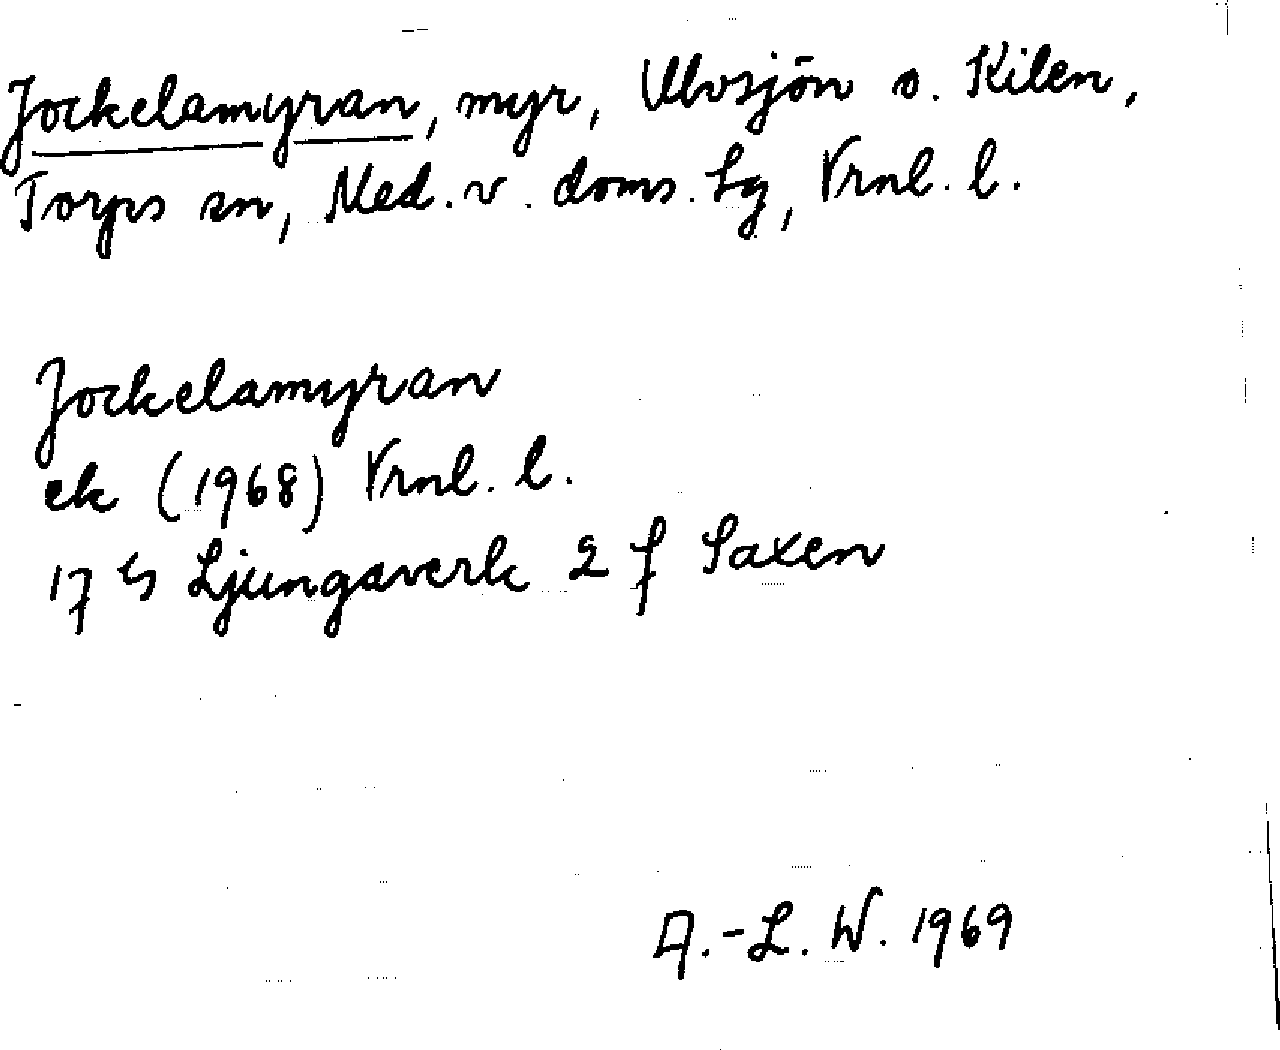 Jockelamyran, myr, Ulvsjön o. Kilen,
Torps sn, Med. v. doms. Lg, Vrnl. l.
Jockelamyran
ek (1968) Vrnl. l.
17 Ljungaverk 2 f Saxen
A.-L. W. 1969